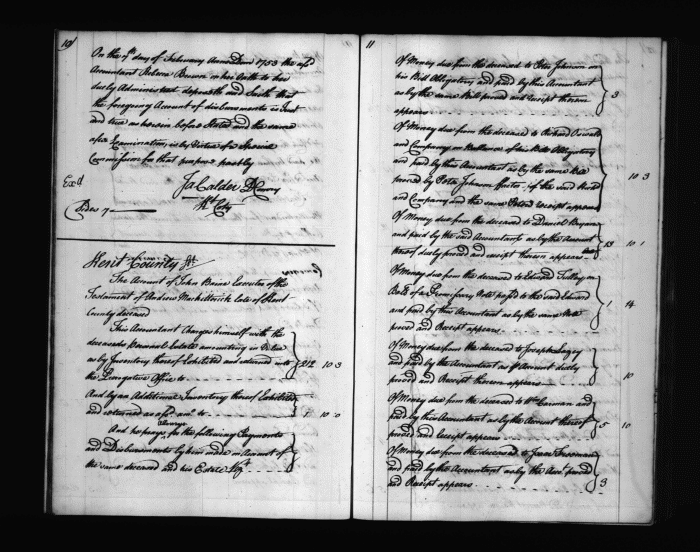 10
On the 7th day of February Anno Domi 1753 the afd
Accountant Rebecca Brown on her Oath to her
duly Administered deposeth and Saith that
the foregoing Account of disbursements is Just
and true as herein before Stated and the same
after Examination, is by Virtue of a Special
Commission for that purpose passed by
Ja Calder D Commry
Kt Coty
Exd
Sides 7
Kent County Ss
The Account of John Executor of the
Testament of Andrew late of Kent
County deceased
This Accountant Charges himself with the
deceaseds Personal Estate amounting in Value
as by Inventory thereof Exhibited and returned into
the Perogative Office to 212 10 3
And by an Additional Inventory thereof Exhibited
and returned as afd amo to 10 0
allowance
And he prays for the following Payments
and Disbursements by him made on Account of
the same deceased and his Estate Vizt
11
Of Money due from the deceased to Peter Johnson on
his Bill Obligatory and paid by this Accountant
as by the same Bill proved and receipt thereon
appears 3
Of Money due from the deceased to Richard
and Company on Ballance of his Bill Obligatory
and paid by this Accountant as by the same Bill
proved by Peter Johnson factor of the said Richd
and Company and the same Peters receipt appears 10 3
Of Money due from the deceased to Daniel Bryan
and paid by the said Accountant as by the Account
thereof duly proved and receipt thereon appears 13 10 1
Of Money due from the deceased to Edward
Ball of a Promissory Note passd to the said Edward
and paid by this Accountant as by the same Note
proved and Receipt appears 1 14
Of Money due from the deceased to Joseph
and paid by the accountant as by Account duly
proved and Receipt thereon appears 10
Of Money due from the deceased to Wm Carman and
paid by this Accountant as by the Account thereof
proved and receipt appears 5 10
Of Money due from the deceased to Isaac Freeman
and paid by the Accountant as by the Acct proved
and Receipt appears 3